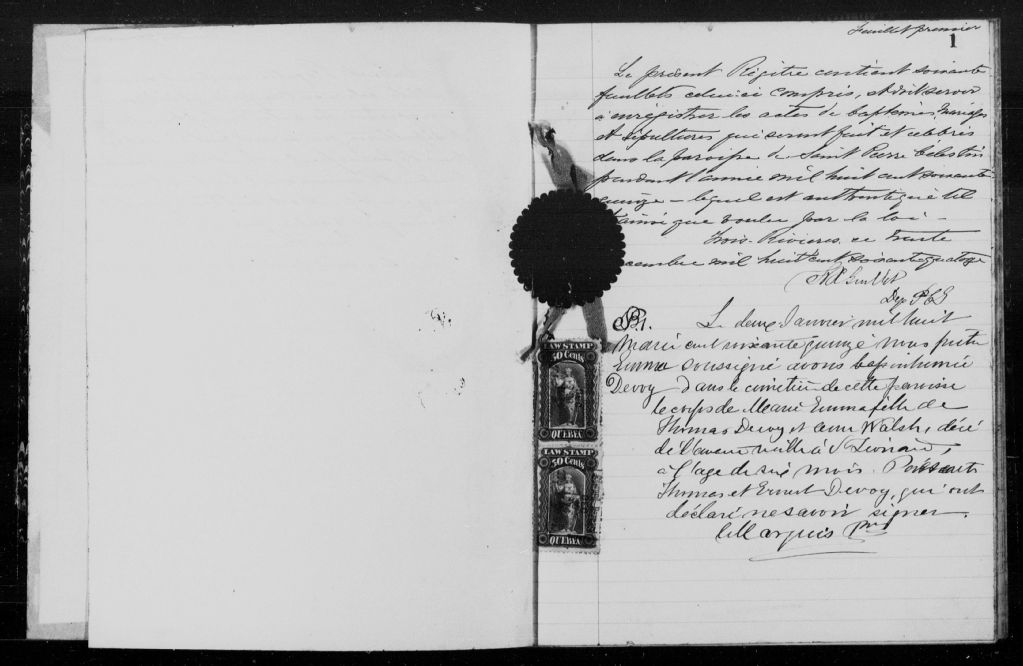 feuillet premier
1
Le présent Régitre contient soixante
feuillets celui-ci compris, et doit servir
à enrégistrer les actes de baptêmes, Mariages
et sépultures qui seront fait et célébrés
dans la paroisse de Saint Pierre Célestin
pendant l'année mil huit cent soixante
quinze - lequel est authentiqué tel
ainsi que voulu par la loi -
Trois-Rivières, ce trente
cembre mil huit cent soixante quatorze
Dep P.C.S
B1.
Marie
Emma
Devoy
Le deux Janvier mil huit
cent soixante quinze nous prêtre
soussigné avons inhumé
dans le cimetière de cette paroisse
le corps de Marie Emma fille de
Thomas Devoy et Ann Walsh, décé
dé l'avant veille à St Léonard,
à l'age de six mois. Présents
Thomas et Ernest Devoy, qui ont
déclaré ne savoir signer.
C. Marquis Ptre
LAW STAMP
50 Cents
QUEBEC
LAW STAMP
50 Cents
QUEBEC